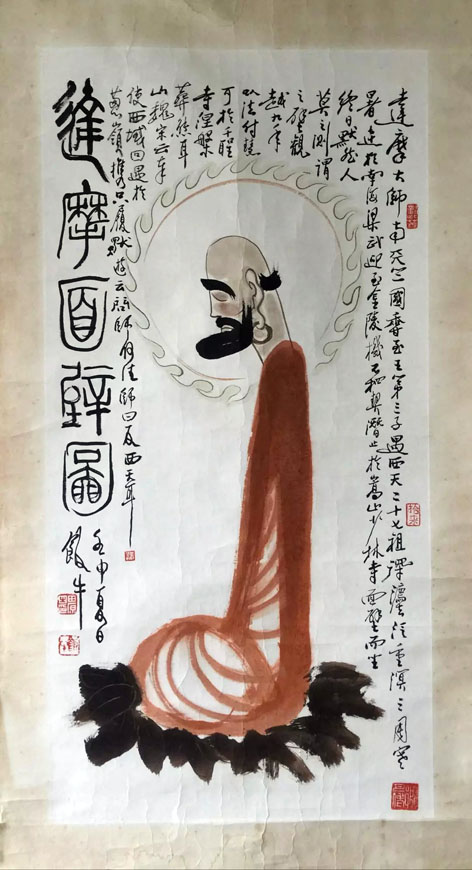 達摩大師南天竺國香至王第三子遇西天二十七祖泛重溟三周寒
暑達於南海梁武迎至金陵機不相契潛止於嵩山少林寺面壁而坐
終日默然人
莫之測謂
之壁觀
越九年
以法付慧
可於千聖
寺涅槃
葬熊耳
山魏宋云奉
使西域回遇於
葱嶺攜只履獨遊云問師何往師曰反西天耳
達摩面壁圖
壬申夏日
鐵牛